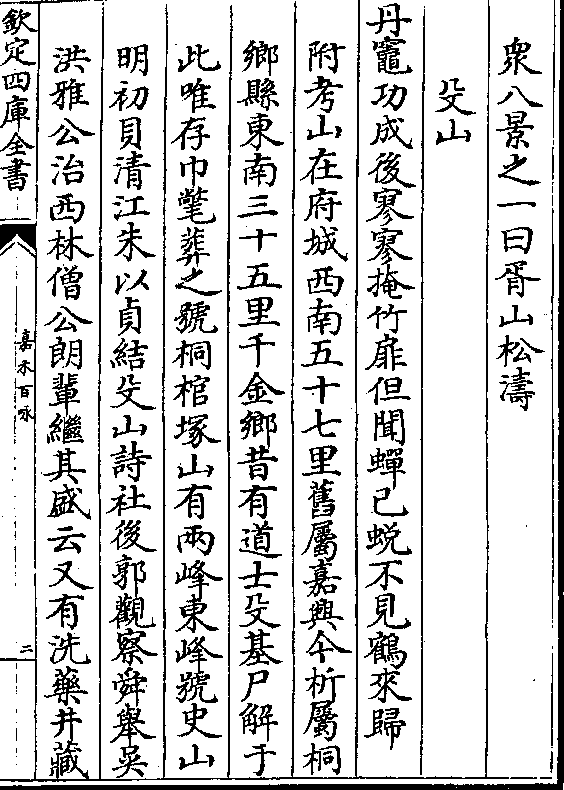 衆八景之一曰胥山松濤
殳山
丹竈功成後寥寥掩竹扉但聞蟬已蜕不見鶴來歸
附考山在府城西南五十七里舊屬嘉興今析屬桐
鄉縣東南三十五里千金鄉昔有道士殳基尸解于
此唯存巾氅葬之號桐棺塚山有兩峰東峰號史山
明初貝清江朱以貞結殳山詩社後郭觀察舜舉吳
洪雅公治西林僧公朗輩繼其盛云又有洗藥井藏
欽定四庫全書
嘉禾百咏
二